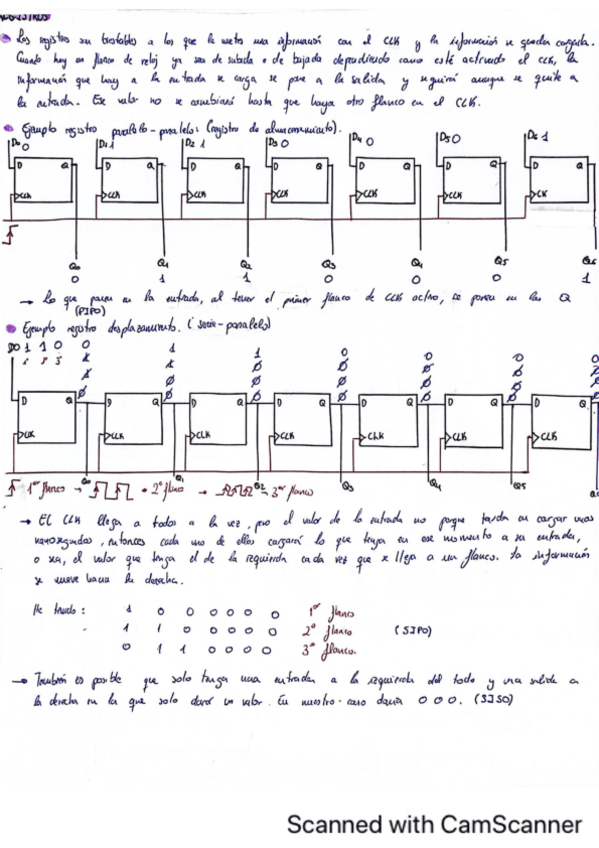 REGISTROS
Los registros son biestables a los que le metes una información con el CLK y la información se queda cargada.
Cuando hay un flanco de reloj ya sea de subida o de bajada dependiendo como esté activado el CLK, la
información que hay a la entrada se carga se pone a la salida y seguirá aunque se quite a
la entrada. Ese valor no se cambiará hasta que haya otro flanco en el CLK.
Ejemplo registro paralelo-paralelo: (registro de almacenamiento).
D0 0 D1 1 D2 1 D3 0 D4 0 D5 0 D6 1
D Q D Q D Q D Q D Q D Q D Q
CLK CLK CLK CLK CLK CLK CK
Q0 Q1 Q2 Q3 Q4 Q5 Q6
0 1 1 0 0 0 1
→ Lo que pones en la entrada, al tener el primer flanco de CLK activo, se ponen en las Q
(PIPO)
Ejemplo registro desplazamiento. (serie-paralelo)
D0 1 1 0 0 1 1 0 0 0 0
D Q D Q D Q D Q D Q D Q D
CLK CLK CLK CLK CLK CLK CLK
Q0 Q1 Q2 Q3 Q4 Q5
1er flanco → 2º flanco → = 3er flanco
→ El CLK llega a todos a la vez, pero el valor de la entrada no porque tarda en cargar unos
nanosegundos, entonces cada uno de ellos cargará lo que tenga en ese momento a su entrada,
o sea, el valor que tenga el de la izquierda cada vez que se llega a un flanco. La información
se mueve hacia la derecha.
1 0 0 0 0 0 0 1er flanco
1 1 0 0 0 0 0 2º flanco (SIPO)
0 1 1 0 0 0 0 3er flanco.
→ También es posible que solo tenga una entrada a la izquierda del todo y una salida a
la derecha en la que solo dará un valor. En nuestro caso daría 0 0 0. (SISO)
Scanned with CamScanner